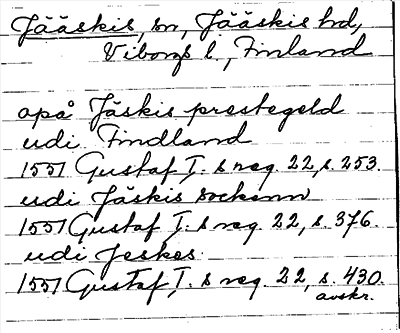 Jääskis, sn, Jääskis hd,
Viborgs l., Finland
apå Jäskis prestegeld
udi Findland
1551 Gustaf I:s reg. 22, s. 253.
udi Jäskis sockenn
1551 Gustaf I:s reg. 22, s. 376.
udi Jeskes
1551 Gustaf I:s reg. 22, s. 430.
avskr.